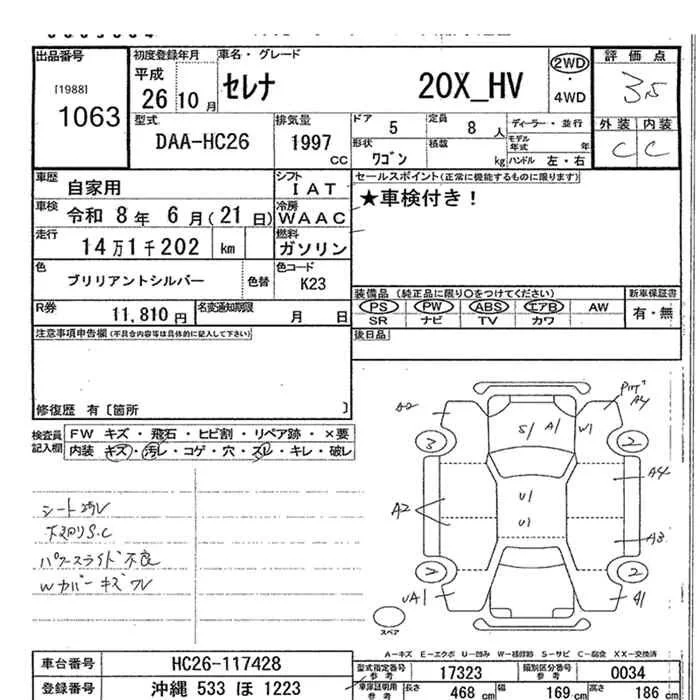 出品番号
[1988]
1063
初度登録年月
平成
26年10月
車名・グレード
セレナ 20X_HV
2WD
・
4WD
評価点
3.5
外装 内装
C C
型式
DAA-HC26
排気量
1997 CC
ドア
5
定員
8 人
ディーラー・並行
形状
ワゴン
積載
kg
モデル年式 年
ハンドル 左・右
車歴
自家用
シフト
IAT
セールスポイント(正常に機能するものに限ります)
★車検付き!
車検
令和 8年 6月(21日)
冷房
WAAC
走行
14万1千202 km
燃料
ガソリン
色
ブリリアントシルバー
色替
色コード
K23
装備品 (純正品に限り○をつけてください)
新車保証書
PS PW ABS エアB AW
有・無
SR ナビ TV カワ
R券
11,810 円
名変通知期限
月 日
後日品
注意事項申告欄(不具合内容等は具体的に記入して下さい)
修復歴 有〔箇所 〕
検査員記入欄
FW キズ・飛石・ヒビ割・リペア跡・×要
内装 キズ・汚レ・コゲ・穴・スレ・キレ・破レ
シート汚レ
下廻りS.C
パワースライド不良
Wカバーキズワレ
A2
A4
S1
A1
W1
3
2
A4
U1
U1
A2
A3
2
2
UA1
A1
スペア
A-キズ E-エクボ U-凹み W-補修跡 S-サビ C-腐食 XX-交換済
車台番号
HC26-117428
型式指定番号 参考
17323
類別区分番号 参考
0034
登録番号
沖縄 533 ほ 1223
車庫証明用 参考
長さ 468 cm
幅 169 cm
高さ 186 cm